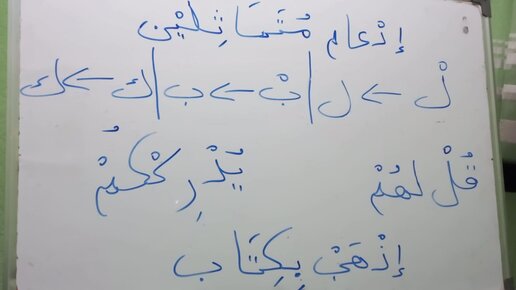 إدْعام مُتَمَاثِلَيْن
لْ ← ل | بْ ← ب | ك ← ك
قُلْ لهُمْ يُدْرِ كْكُمْ
إذْهَبْ بِكِتَاب